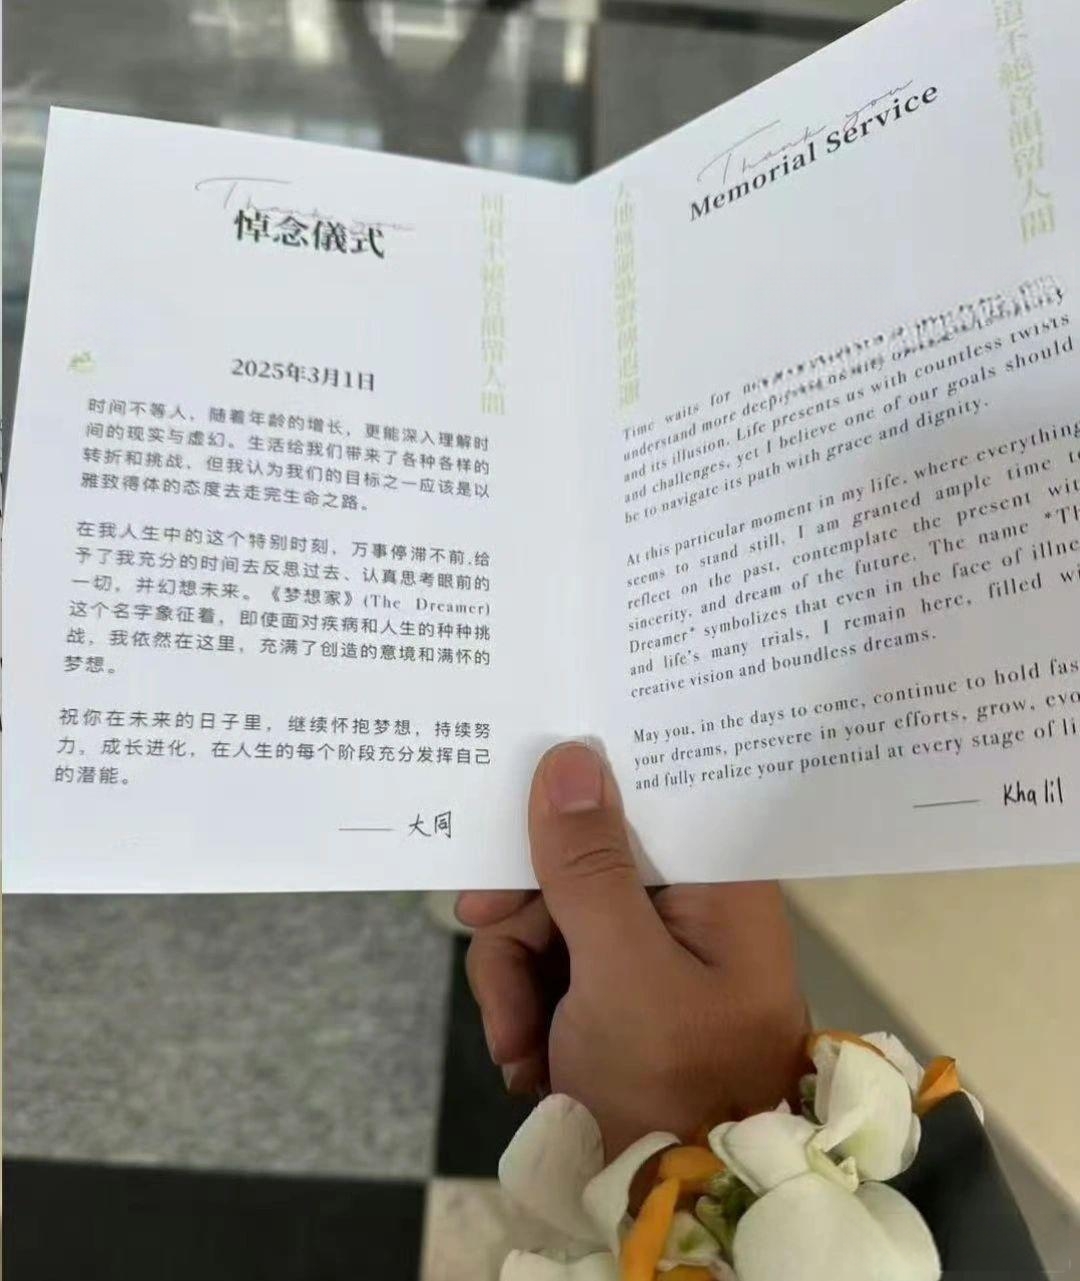 Thank you
悼念儀式
2025年3月1日
时间不等人，随着年龄的增长，更能深入理解时
间的现实与虚幻。生活给我们带来了各种各样的
转折和挑战，但我认为我们的目标之一应该是以
雅致得体的态度去走完生命之路。
在我人生中的这个特别时刻，万事停滞不前,给
予了我充分的时间去反思过去、认真思考眼前的
一切，并幻想未来。《梦想家》(The Dreamer)
这个名字象征着，即使面对疾病和人生的种种挑
战，我依然在这里，充满了创造的意境和满怀的
梦想。
祝你在未来的日子里，继续怀抱梦想，持续努
力，成长进化，在人生的每个阶段充分发挥自己
的潜能。
—— 大同
同道不絕音韻留人間
Thank you
Memorial Service
道不絕音韻留人間
Time waits for
understand more deep
and its illusion. Life presents us with countless twists
and challenges, yet I believe one of our goals should
be to navigate its path with grace and dignity.
At this particular moment in my life, where everything
seems to stand still, I am granted ample time t
reflect on the past, contemplate the present wit
sincerity, and dream of the future. The name *Th
Dreamer* symbolizes that even in the face of illne
and life's many trials, I remain here, filled wi
creative vision and boundless dreams.
May you, in the days to come, continue to hold fas
your dreams, persevere in your efforts, grow, evo
and fully realize your potential at every stage of li
—— Khalil